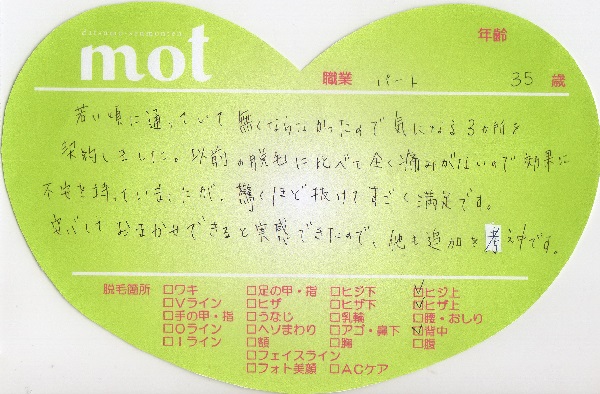 datsumou・aromanored
mot
年齢
職業 パート 35 歳
若い頃に通っていて無くならなかったので気になる3カ所を
契約しました。以前の脱毛に比べて全く痛みがないので効果に
不安を持っていましたが、驚くほど抜けてすごく満足です。
安心しておまかせできると実感できたので、他も追加を考え中です。
脱毛箇所 □ワキ □足の甲・指 □ヒジ下 ☑ヒジ上
□Vライン □ヒザ □ヒザ下 ☑ヒザ上
□手の甲・指 □うなじ □乳輪 □腰・おしり
□Oライン □ヘソまわり □アゴ・鼻下 ☑背中
□Iライン □額 □胸 □腹
□フェイスライン
□フォト美顔 □ACケア